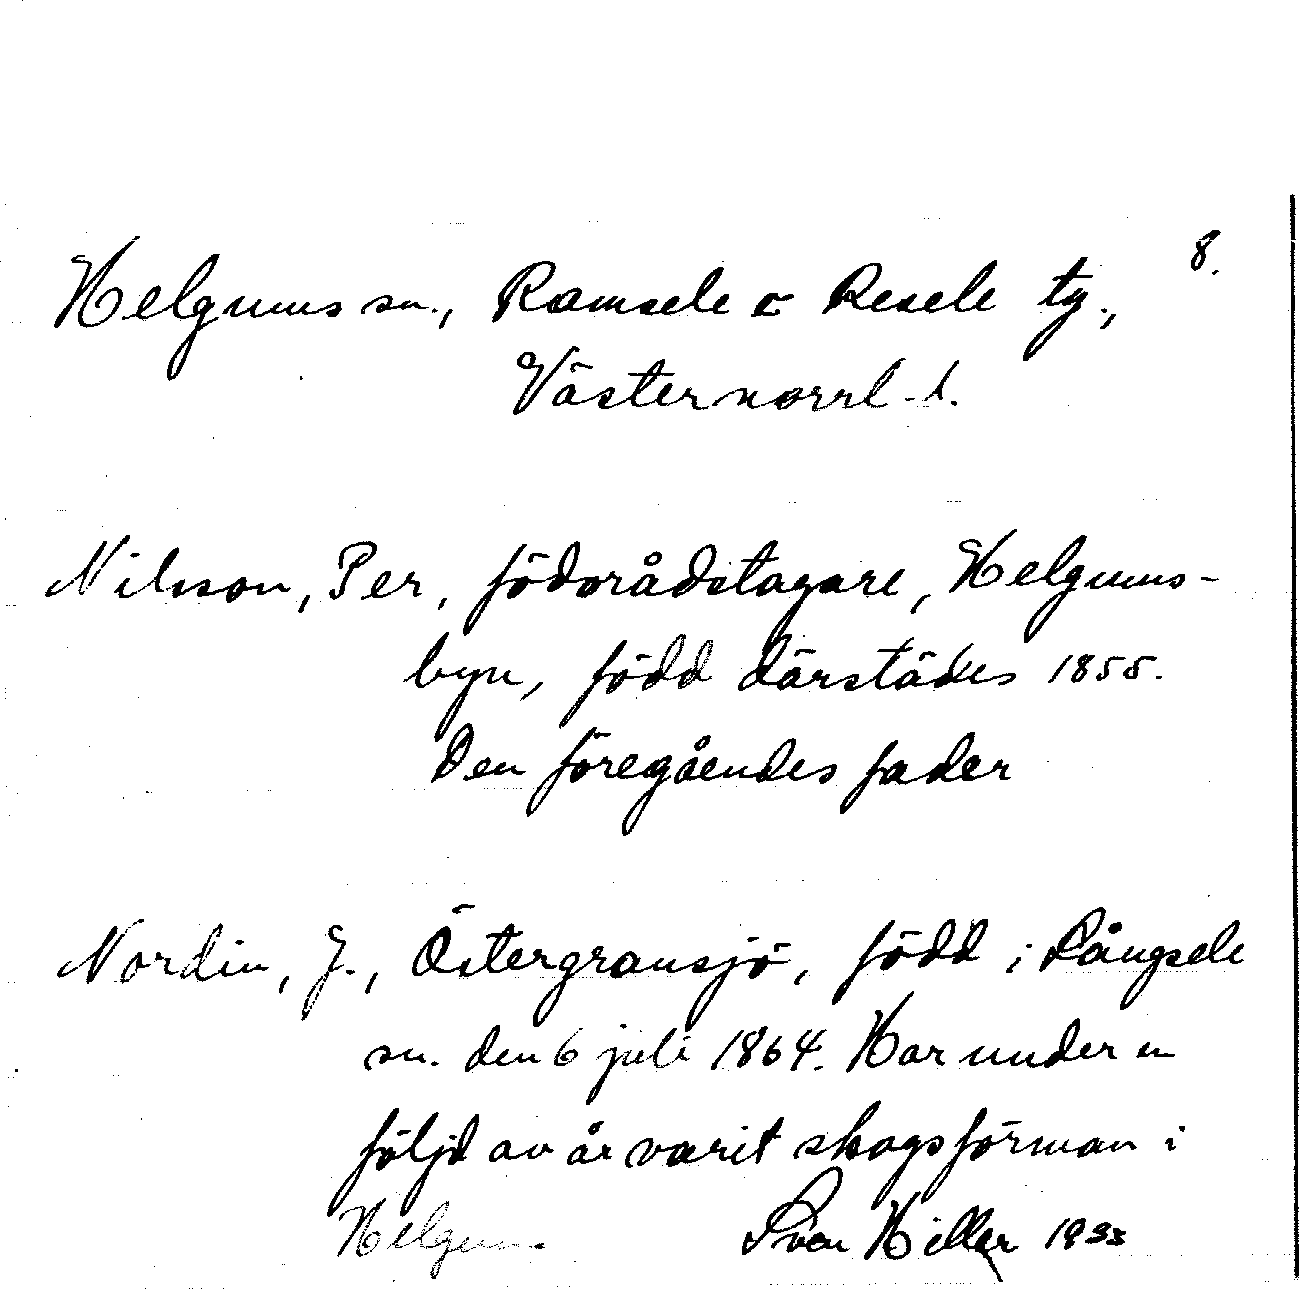 8.
Helgums sn., Ramsele o Resele tg.,
Västernorrl. l.
Nilsson, Per, födorådstagare, Helgums-
byn, född därstädes 1855.
Den föregåendes fader
Nordin, J., Östergransjö, född i Långsele
sn. den 6 juli 1864. Har under en
följd av år varit skogsförman i
Helgum. Sven Hiller